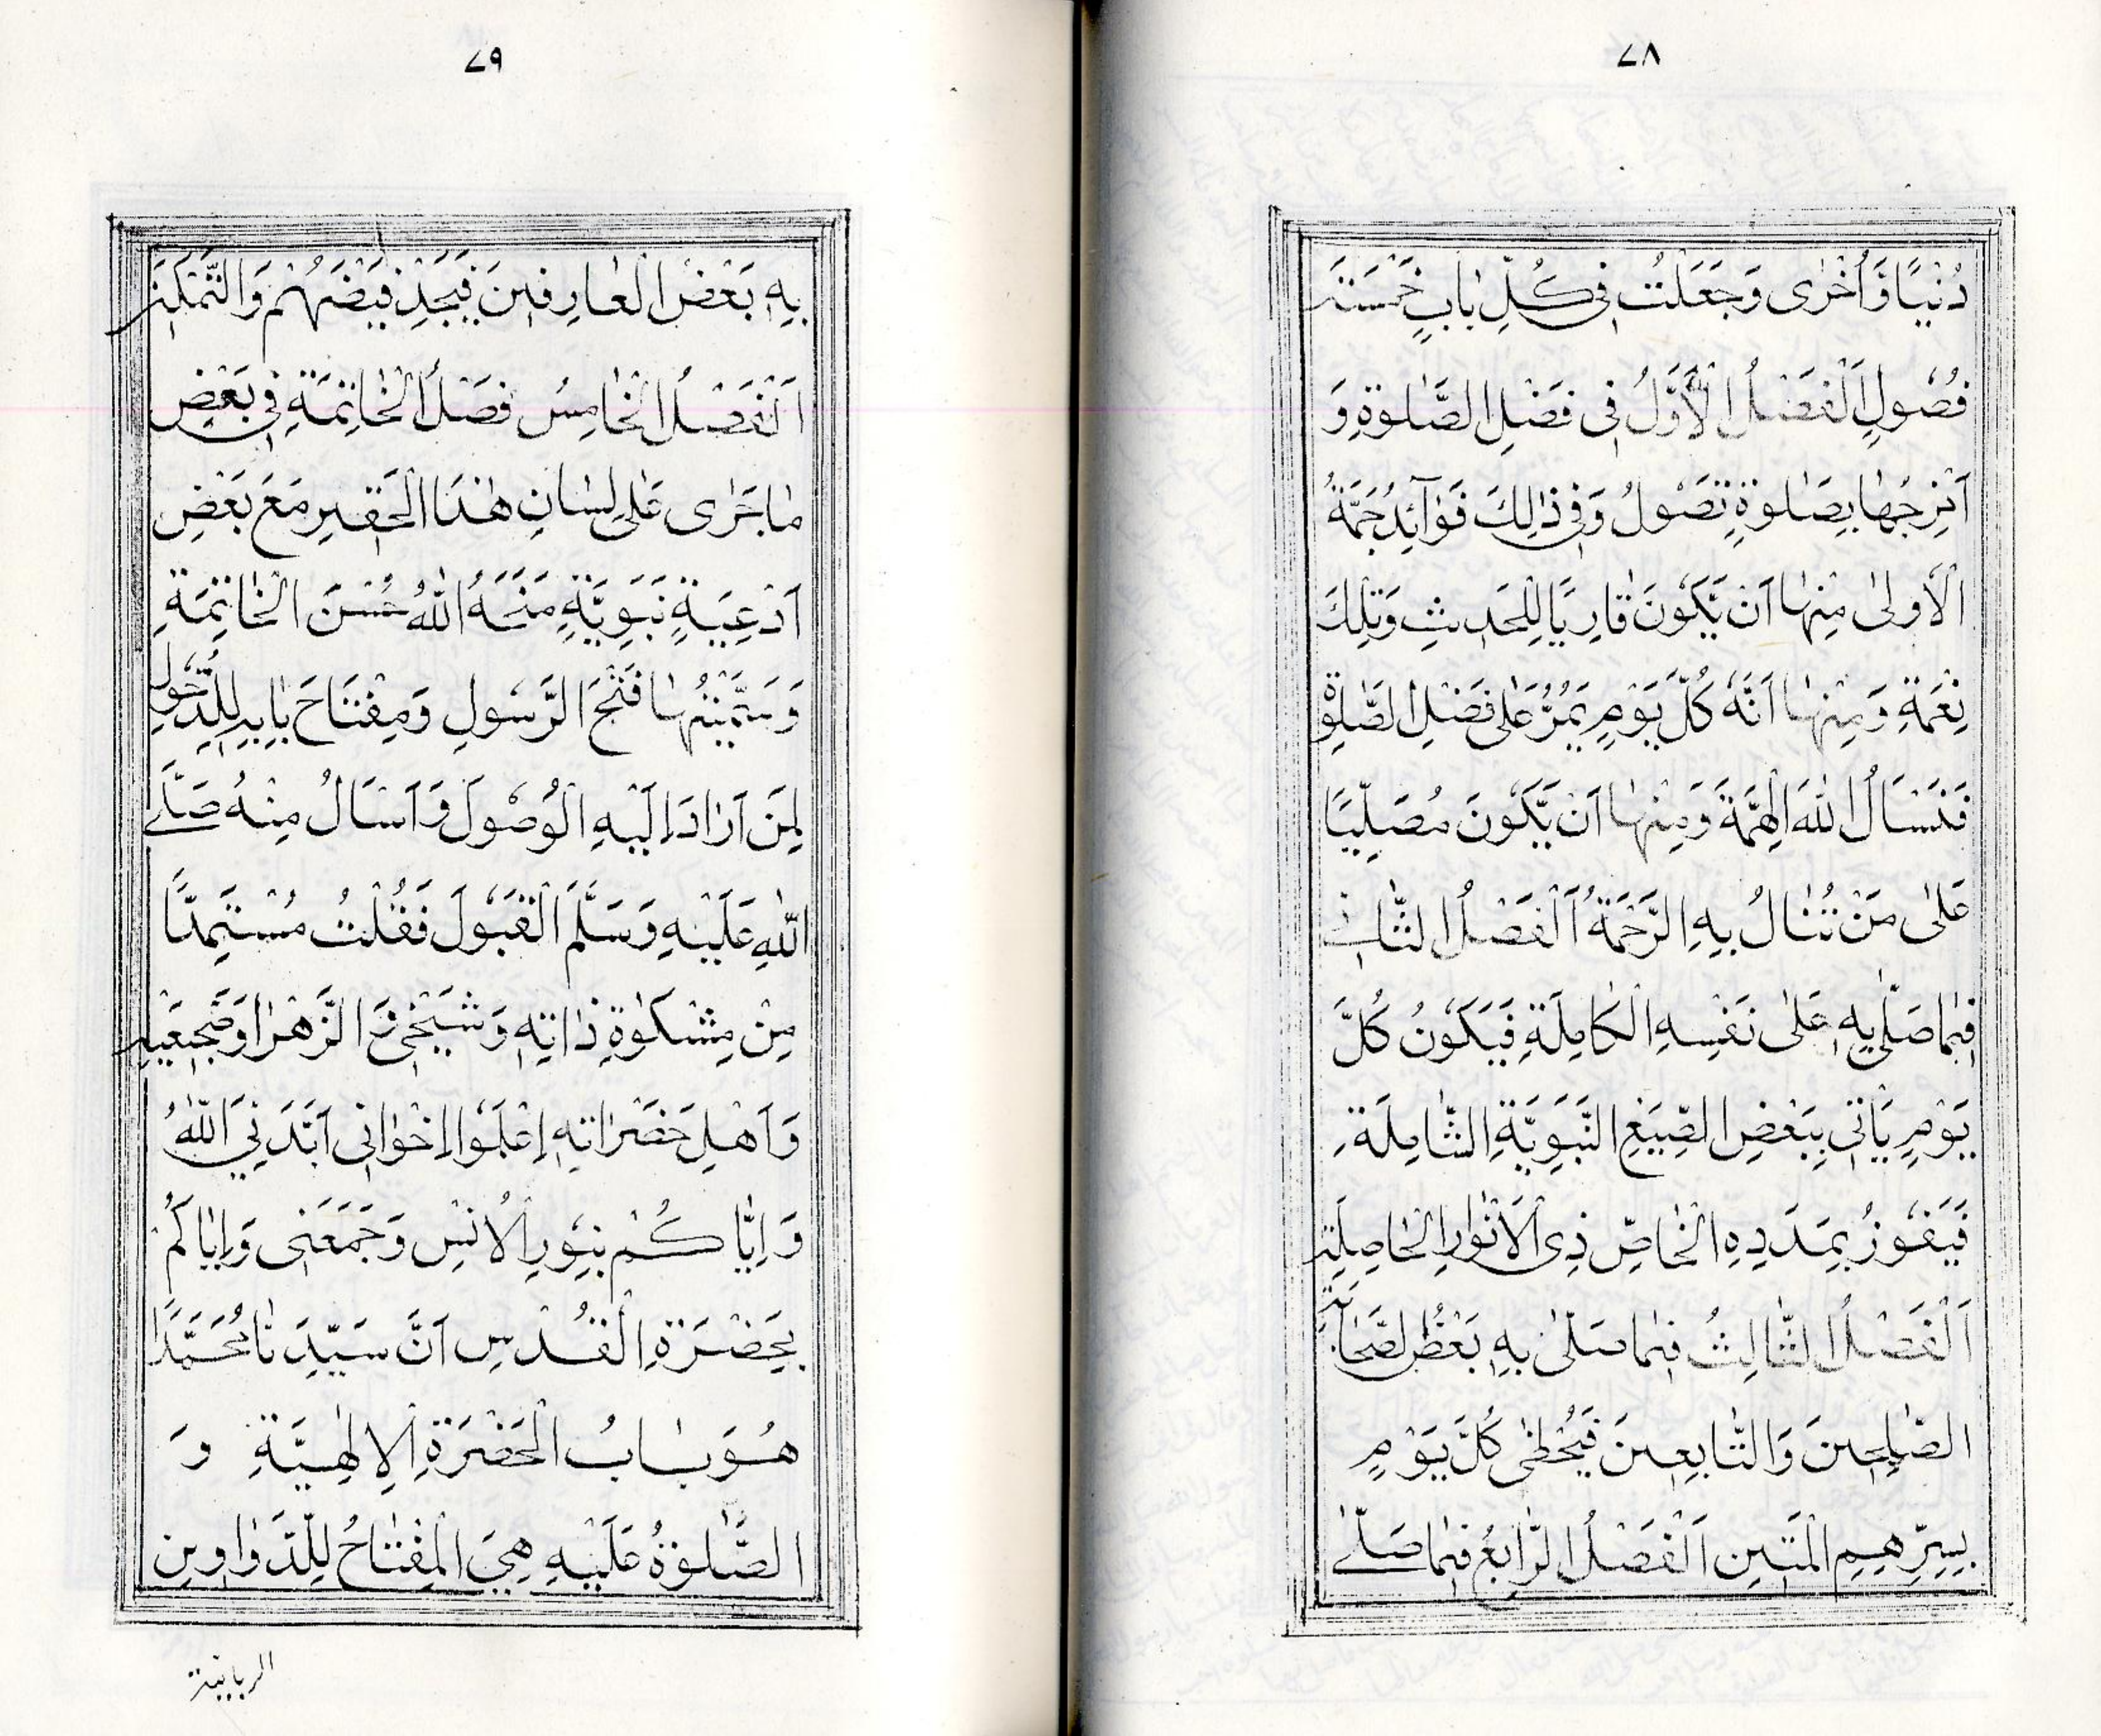 ٢٨
دُنْيًا وَّاُخْرٰى وَجَعَلْتُ فِى كُلِّ بَابٍ خَمْسَةَ
فُصُولٍ اَلْفَصْلُ الْاَوَّلُ فِى فَضْلِ الصَّلٰوةِ وَ
اَنْزِجُهَا بِصَلٰوةٍ تَصُولُ وَفِى ذٰلِكَ فَوَآئِدُ جَمَّةٌ
الْاُولٰى مِنْهَا اَنْ يَّكُونَ قَارِيًا لِلْحَدِيثِ وَتِلْكَ
نِعْمَةٌ وَمِنْهَا اَنَّهُ كُلَّ يَوْمٍ يَمُرُّ عَلٰى فَضْلِ الصَّلٰوةِ
فَنَسْاَلُ اللّٰهَ الْهِمَّةَ وَمِنْهَا اَنْ يَّكُونَ مُصَلِّيًا
عَلٰى مَنْ تُنَالُ بِهِ الرَّحْمَةُ اَلْفَصْلُ الثَّانِى
فِيمَا صَلّٰى بِهِ عَلٰى نَفْسِهِ الْكَامِلَةِ فَيَكُونُ كُلَّ
يَوْمٍ يَأْتِى بِبَعْضِ الصِّيَغِ النَّبَوِيَّةِ الشَّامِلَةِ
فَيَفُوزُ بِمَدَدِهِ الْخَاصِّ ذِى الْاَنْوَارِ الْحَاصِلَةِ
اَلْفَصْلُ الثَّالِثُ فِيمَا صَلّٰى بِهِ بَعْضُ الصَّحَابَةِ
الصّٰلِحِينَ وَالتَّابِعِينَ فَيَحْظٰى كُلَّ يَوْمٍ
بِسِرِّهِمِ الْمَتِينِ اَلْفَصْلُ الرَّابِعُ فِيمَا صَلّٰى
٢٩
بِهِ بَعْضُ الْعَارِفِينَ فَيَجِدُ فَيْضَهُمْ وَالتَّمْكِينَ
اَلْفَصْلُ الْخَامِسُ فَصْلُ الْخَاتِمَةِ فِى بَعْضِ
مَا جَرٰى عَلٰى لِسَانِ هٰذَا الْحَقِيرِ مَعَ بَعْضِ
اَدْعِيَةٍ نَبَوِيَّةٍ مَنَحَهُ اللّٰهُ حُسْنَ الْخَاتِمَةِ
وَسَمَّيْتُهَا فَتْحَ الرَّسُولِ وَمِفْتَاحَ بَابِهِ لِلدُّخُولِ
لِمَنْ اَرَادَ اِلَيْهِ الْوُصُولَ وَاَسْاَلُ مِنْهُ صَلَّى
اللّٰهُ عَلَيْهِ وَسَلَّمَ الْقَبُولَ فَقُلْتُ مُسْتَمِدًّا
مِنْ مِشْكٰوةِ ذَاتِهِ وَشَيْخَىَّ الزَّهْرَا وَضَجِيعَيْهِ
وَاَهْلِ حَضَرَاتِهِ اِعْلَمُوا اِخْوَانِى اَيَّدَنِىَ اللّٰهُ
وَاِيَّاكُمْ بِنُورِ الْاُنْسِ وَجَمَعَنِى وَاِيَّاكُمْ
بِحَضْرَةِ الْقُدْسِ اَنَّ سَيِّدَنَا مُحَمَّدًا
هُوَ بَابُ الْحَضْرَةِ الْاِلٰهِيَّةِ وَ
الصَّلٰوةُ عَلَيْهِ هِىَ الْمِفْتَاحُ لِلدَّوَاوِينِ
الربانية